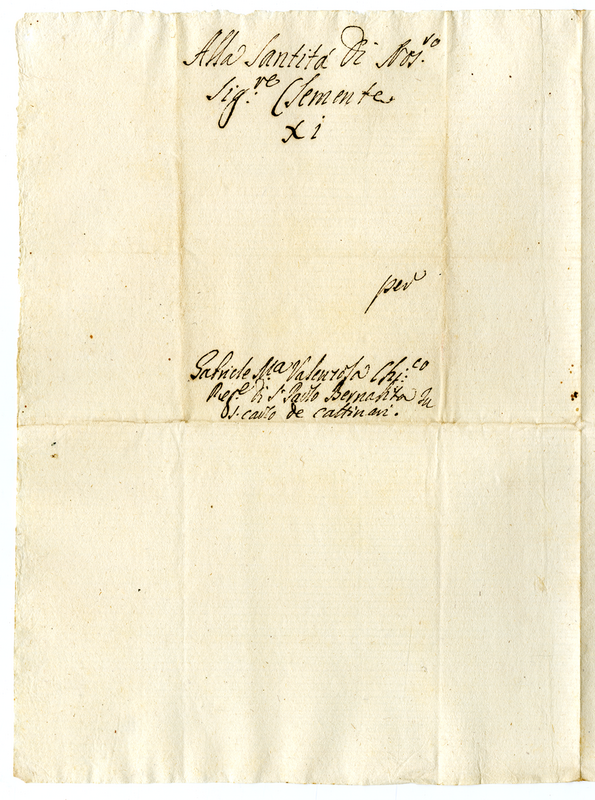 Alla Santità Di Nos.ro
Sig.re Clemente
Xi
per
Gabriele M.a Valenzola Chi.co
Reg.e Di S. Paolo Bernabita In
S. carlo de cattinari.